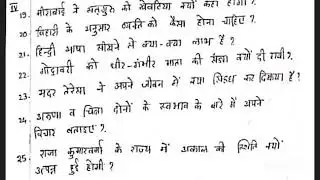 IV
19. मीराबाई ने सतगुरु को खेवटिया क्यों कहा होगा ?
20. बिहारी के अनुसार व्यक्ति को कैसा होना चाहिए ?
21. हिन्दी भाषा सीखने में क्या-क्या लाभ है ?
22. गोदावरी को धीर-गंभीर माता की संज्ञा क्यों दी गयी ?
23. मदर तेरेसा ने अपने जीवन में क्या सिद्ध कर दिखाया है ?
24. अरुणा व चित्रा दोनों के स्वभाव के बारे में अपने
विचार बताइए ?
25. राजा कुमारवर्मा के राज्य में अकाल की स्थिति क्यों
उत्पन्न हुई होगी ?